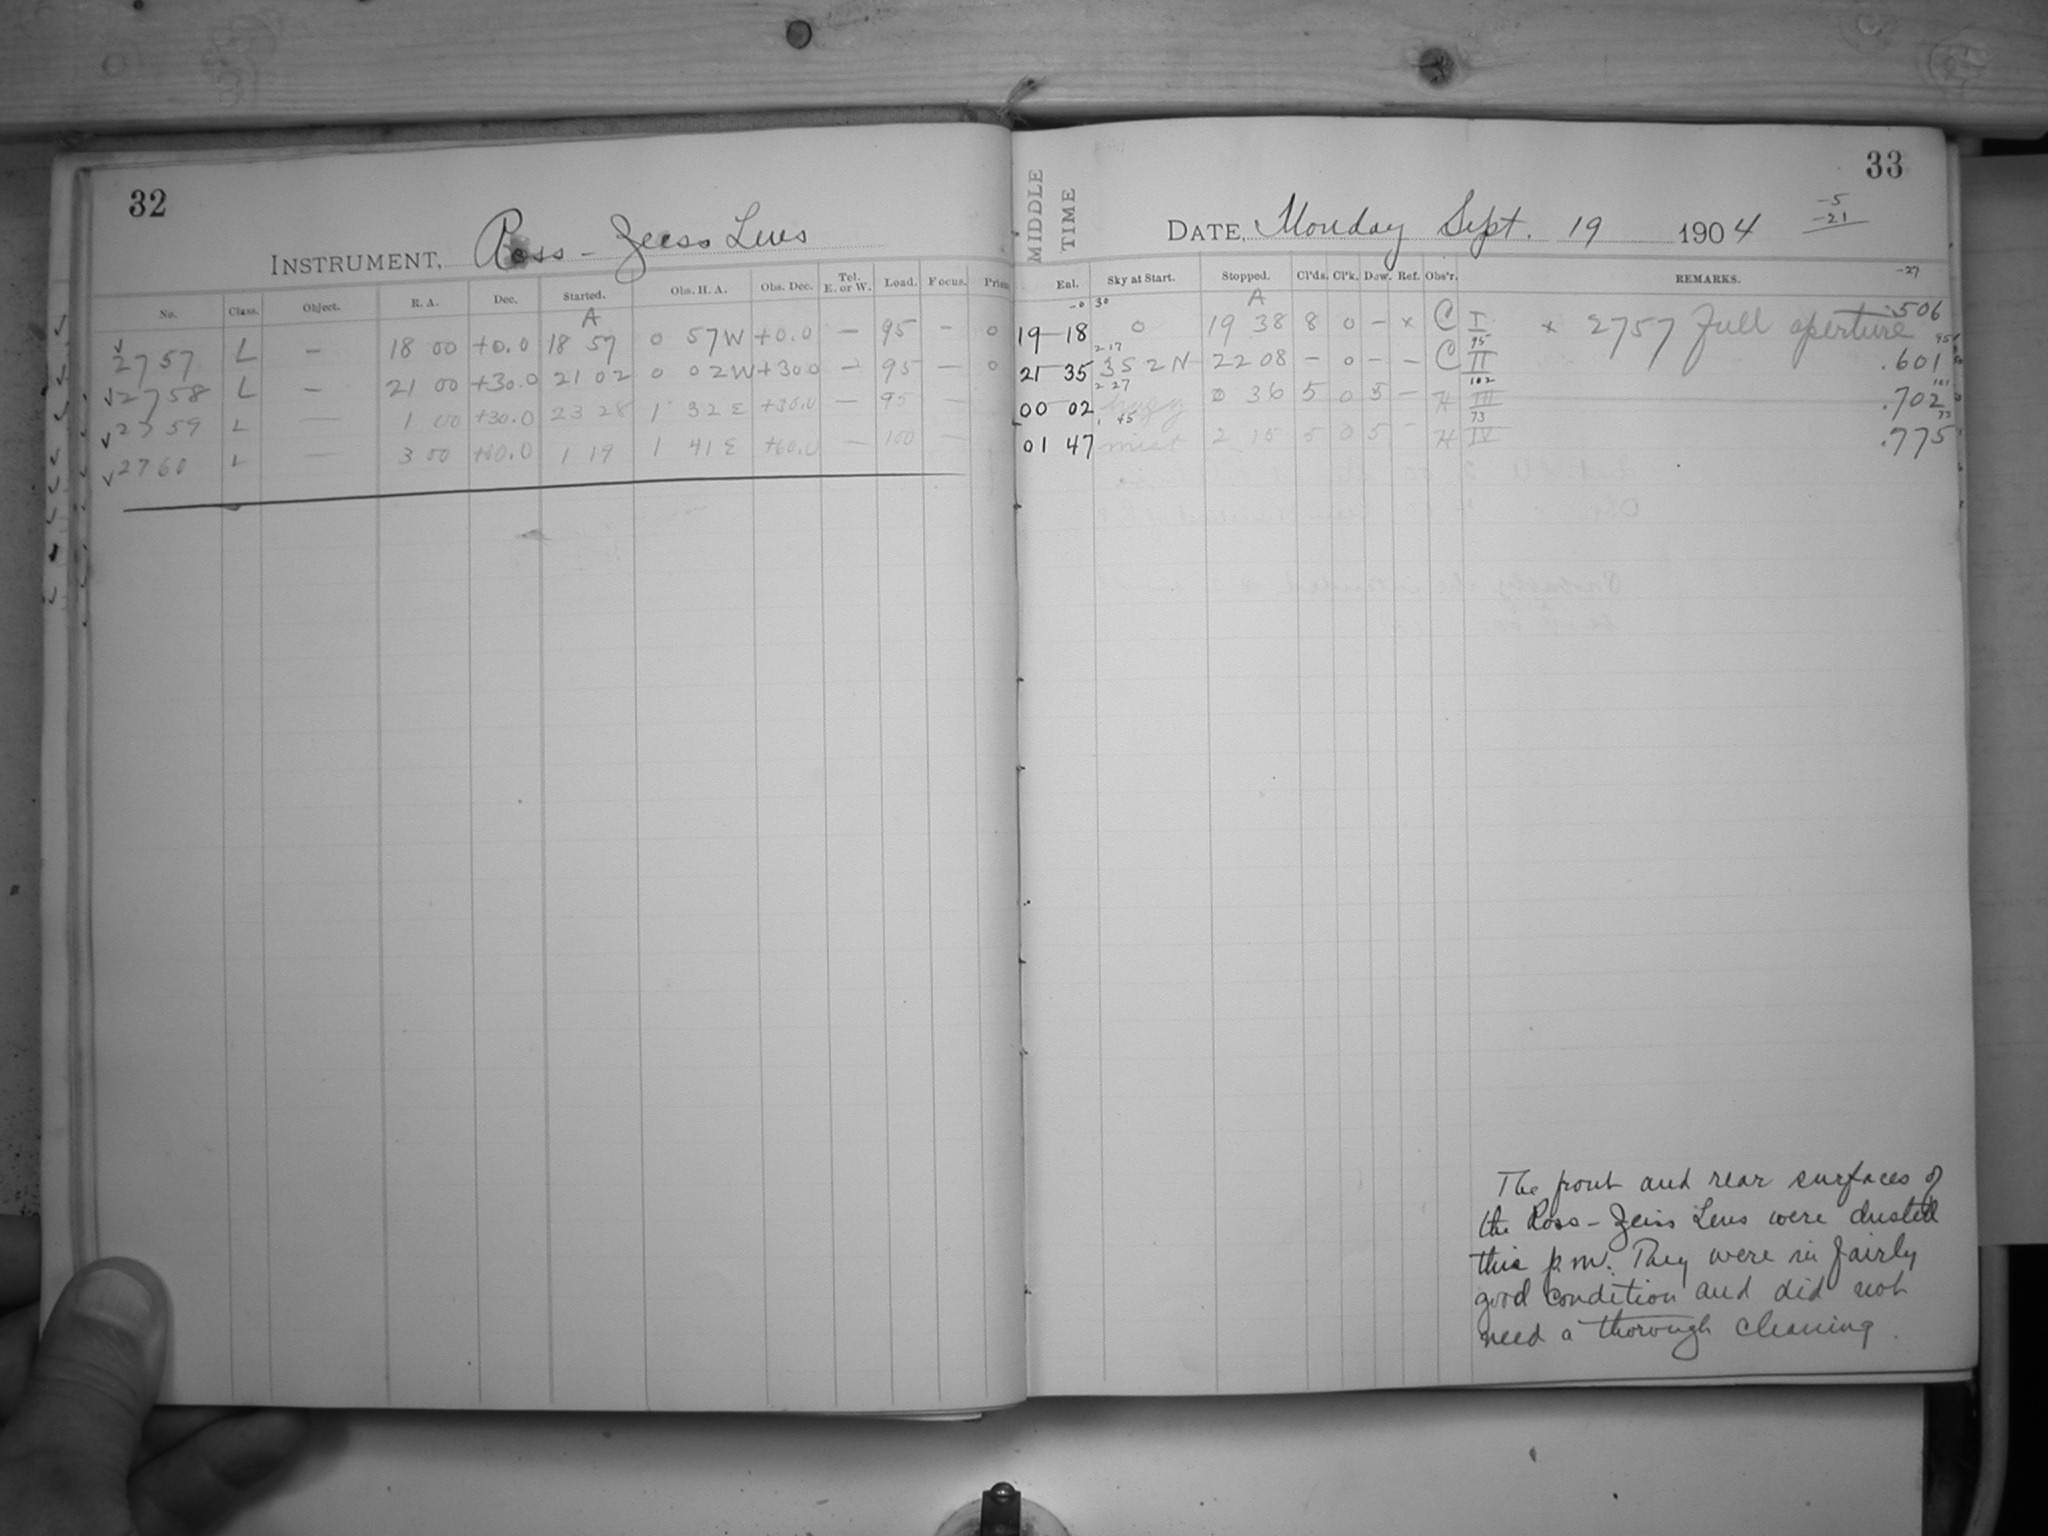 32
INSTRUMENT, Ross - Zeiss Lens
No. Class. Object. R. A. Dec. Started. Obs. H. A. Obs. Dec. Tel. E. or W. Load. Focus. Prism
A
2757 L — 18 00 +0.0 18 57 0 57 W +0.0 — 95 — 0
2758 L — 21 00 +30.0 21 02 0 02 W +30.0 — 95 — 0
2759 L — 1 00 +30.0 23 28 1 32 E +30.0 — 95 —
2760 L — 3 00 +60.0 1 19 1 41 E +60.0 — 100 —
33
MIDDLE TIME
DATE, Monday Sept. 19 1904
-5
-21
-27
Eal. Sky at Start. Stopped. Cl'ds. Cl'k. Dew. Ref. Obs'r. REMARKS.
-0 30 A
19 18 0 19 38 8 0 — x C I x 2757 Full aperture .506
2 17 95
21 35 3 S 2 N 22 08 — 0 — — C II .601
2 27 102 101
00 02 hazy 0 36 5 0 5 — H III .702
1 45 73 73
01 47 mist 2 15 5 0 5 — H IV .775
The front and rear surfaces of
the Ross - Zeiss Lens were dusted
this p.m. They were in fairly
good condition and did not
need a thorough cleaning.